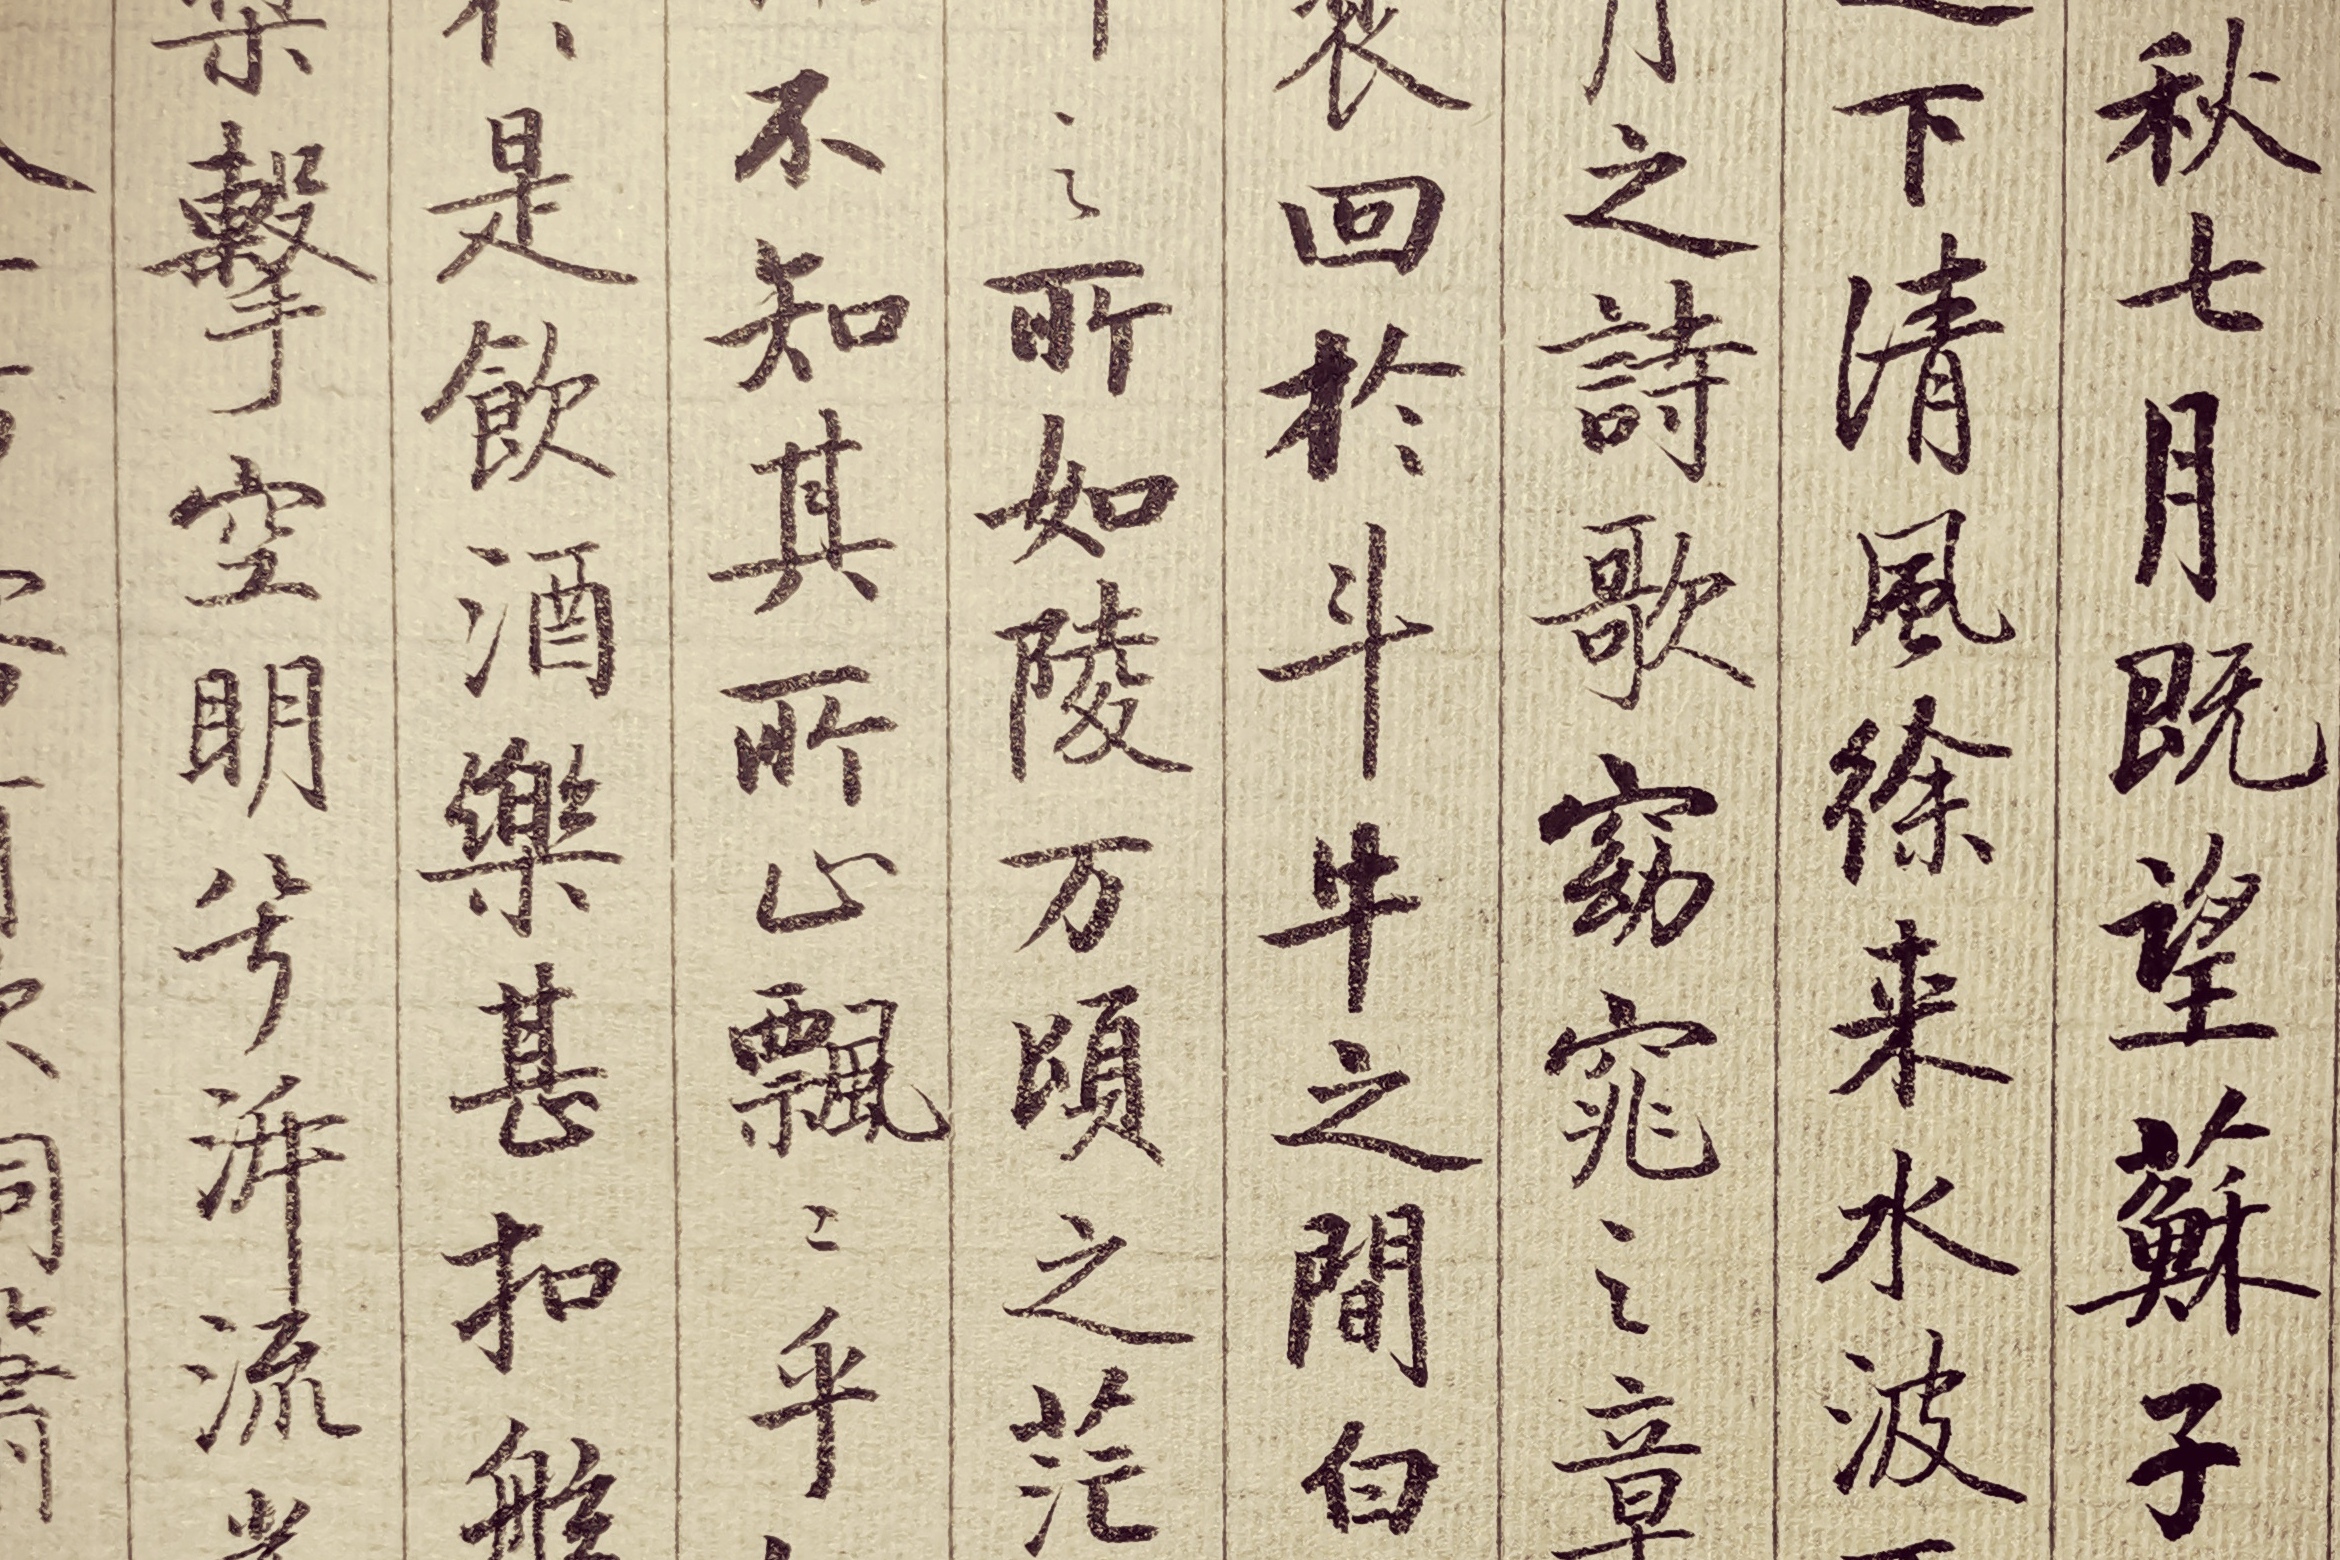 秋七月既望蘇子
下清風徐来水波
月之詩歌窈窕之章
回於斗牛之間白
之所如陵万頃之茫
不知其所止飄〻乎
是飲酒樂甚扣舷
擊空明兮泝流